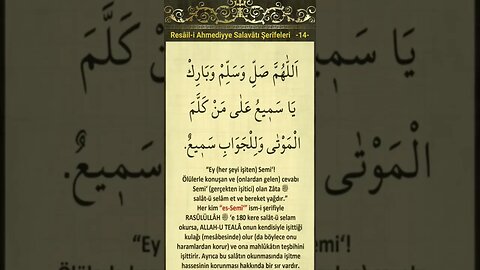 Resâil-i Ahmediyye Salavâtı Şerifeleri -14-
اَللّٰهُمَّ صَلِّ وَسَلِّمْ وَبَارِكْ
يَا سَمٖيعُ عَلٰى مَنْ كَلَّمَ
الْمَوْتٰى وَلِلْجَوَابِ سَمٖيعٌ.
"Ey (her şeyi işiten) Semi'!
Ölülerle konuşan ve (onlardan gelen) cevabı
Semi' (gerçekten işitici) olan Zâta ﷺ
salât-ü selâm et ve bereket yağdır."
Her kim "es-Semî'" ism-i şerifiyle
RASÛLÜLLÂH ﷺ 'e 180 kere salât-ü selam
okursa, ALLAH-U TEALÂ onun kendisiyle işittiği
kulağı (mesâbesinde) olur (da böylece onu
haramlardan korur) ve ona mahlûkâtın teşbihini
işittirir. Ayrıca bu salâtın okunmasında işitme
hassesinin korunması hakkında bir sır vardır.